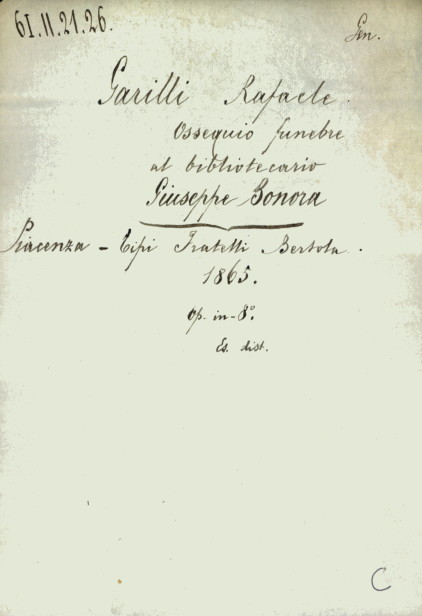 61.II.21.26.
Gen.
Garilli Rafaele.
Ossequio funebre
al bibliotecario
Giuseppe Bonora
Piacenza - Tipi Fratelli Bertola.
1865.
Op. in-8°.
Es. dist.
C